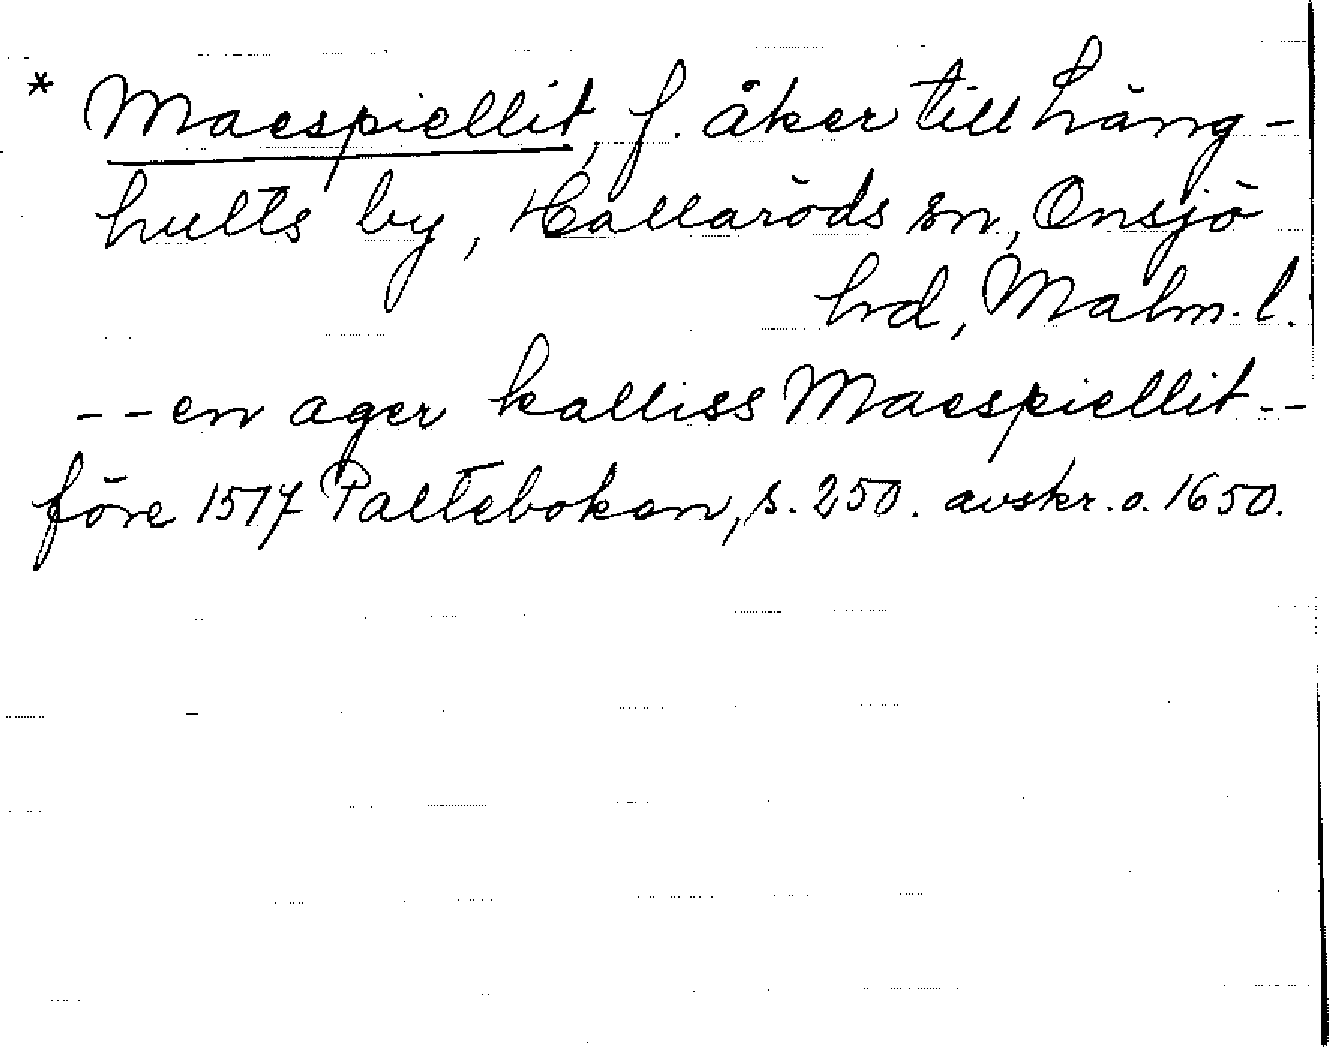 * Maespiellit, f. åker till Häng-
hults by, Hallaröds sn, Onsjö
hd, Malm. l.
- - en ager kalliss Maespiellit - -
före 1517 Paltebokon, s. 250. avskr. o. 1650.